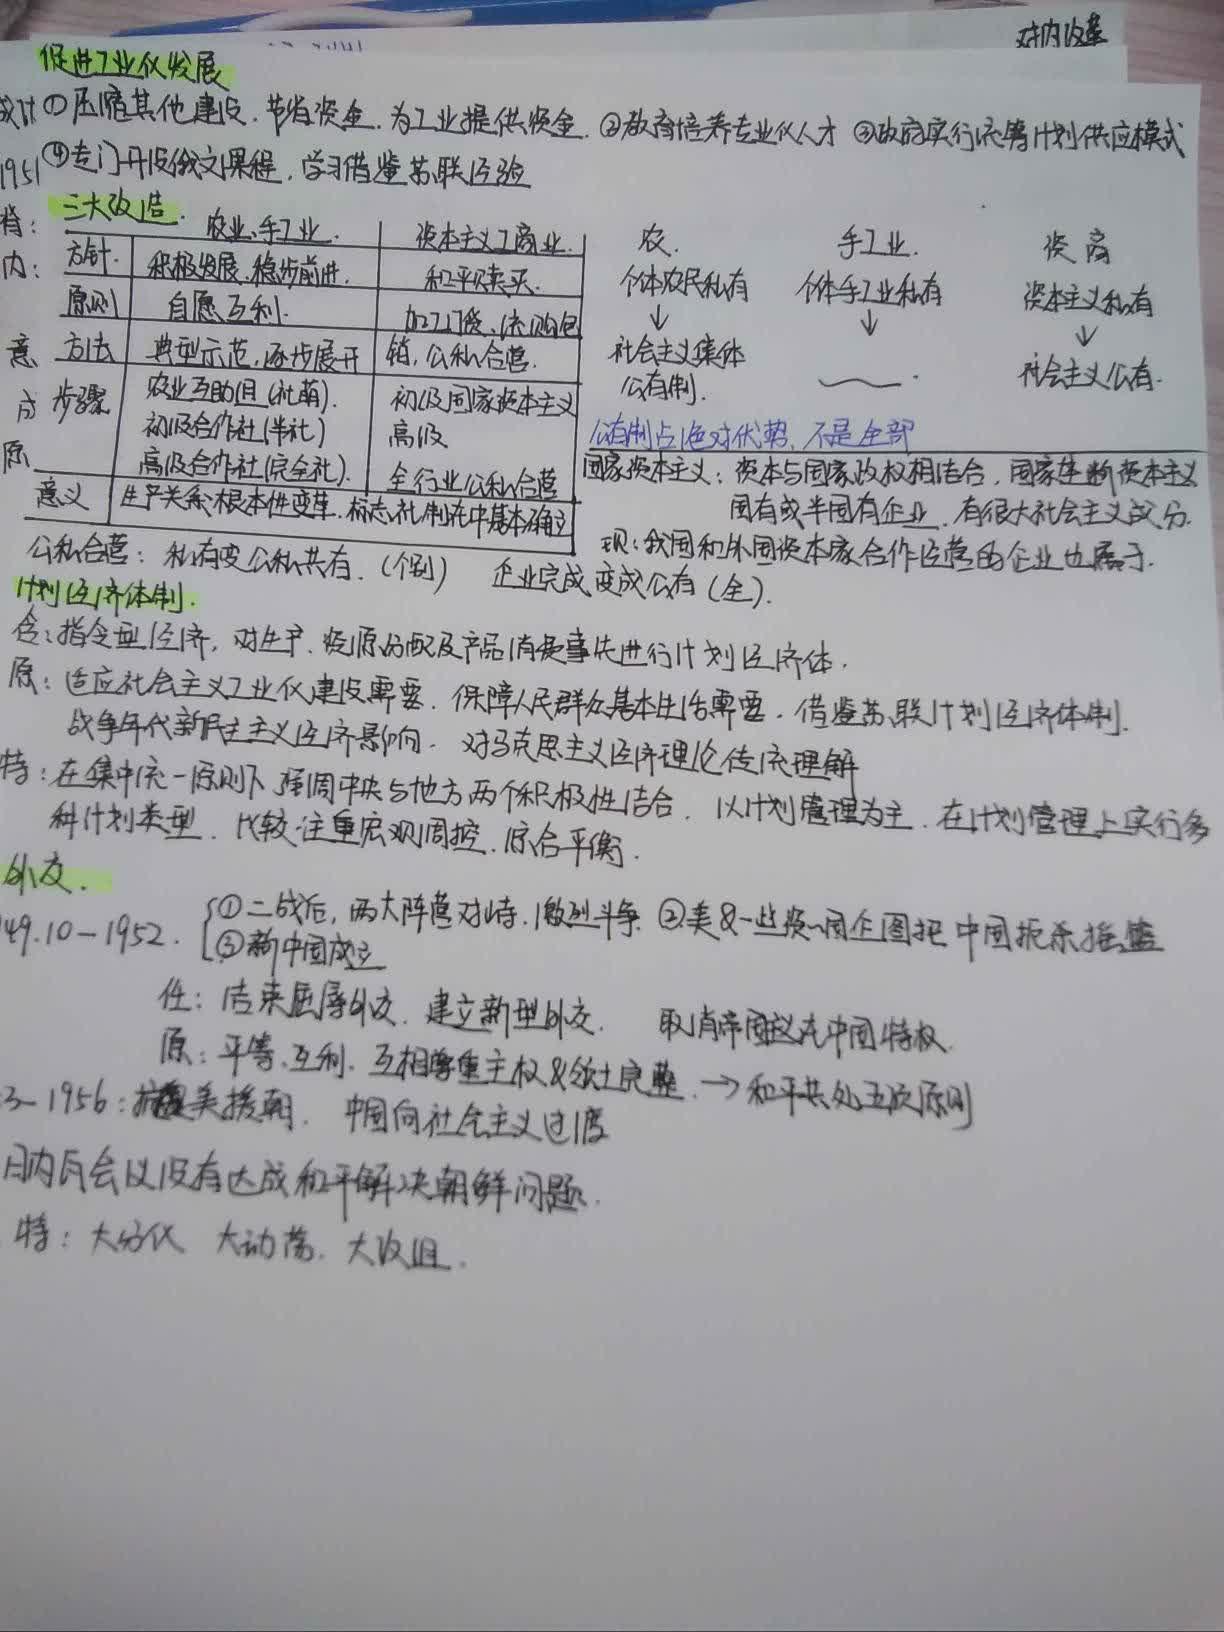 对内改革
促进工业化发展
①压缩其他建设，节省资金，为工业提供资金 ②教育培养专业化人才 ③政府实行统筹计划供应模式
1951 ④专门开设俄文课程，学习借鉴苏联经验
三大改造.
农业、手工业. 资本主义工商业.
方针. 积极发展、稳步前进. 和平赎买.
原则 自愿互利. 加工订货、统购包
方法 典型示范，逐步展开 销，公私合营.
步骤 农业互助组(社萌). 初级国家资本主义
初级合作社(半社) 高级
高级合作社(完全社). 全行业公私合营
意义 生产关系根本性变革，标志社制在中基本确立
农. 手工业. 资商
个体农民私有 个体手工业私有 资本主义私有
↓ ↓ ↓
社会主义集体 社会主义公有.
公有制.
公有制占绝对优势，不是全部
国家资本主义：资本与国家政权相结合，国家垄断资本主义
国有或半国有企业，有很大社会主义成分.
现：我国和外国资本家合作经营的企业也属于.
公私合营：私有变公私共有.(个别) 企业完成变成公有(全).
计划经济体制.
含：指令型经济，对生产、资源分配及产品消费事先进行计划经济体.
原：适应社会主义工业化建设需要，保障人民群众基本生活需要，借鉴苏联计划经济体制.
战争年代新民主主义经济影响，对马克思主义经济理论传统理解
特：在集中统一原则下强调中央与地方两个积极性结合，以计划管理为主，在计划管理上实行多
种计划类型，比较注重宏观调控，综合平衡.
外交.
49.10-1952. ①二战后，两大阵营对峙，激烈斗争 ②美&一些资~国企图把中国扼杀摇篮
③新中国成立
任：结束屈辱外交，建立新型外交. 取消帝国议在中国特权.
原：平等、互利、互相尊重主权&领土完整. →和平共处五项原则
3-1956：抗美援朝， 中国向社会主义过度
日内瓦会议没有达成和平解决朝鲜问题.
特：大分化 大动荡. 大改组.